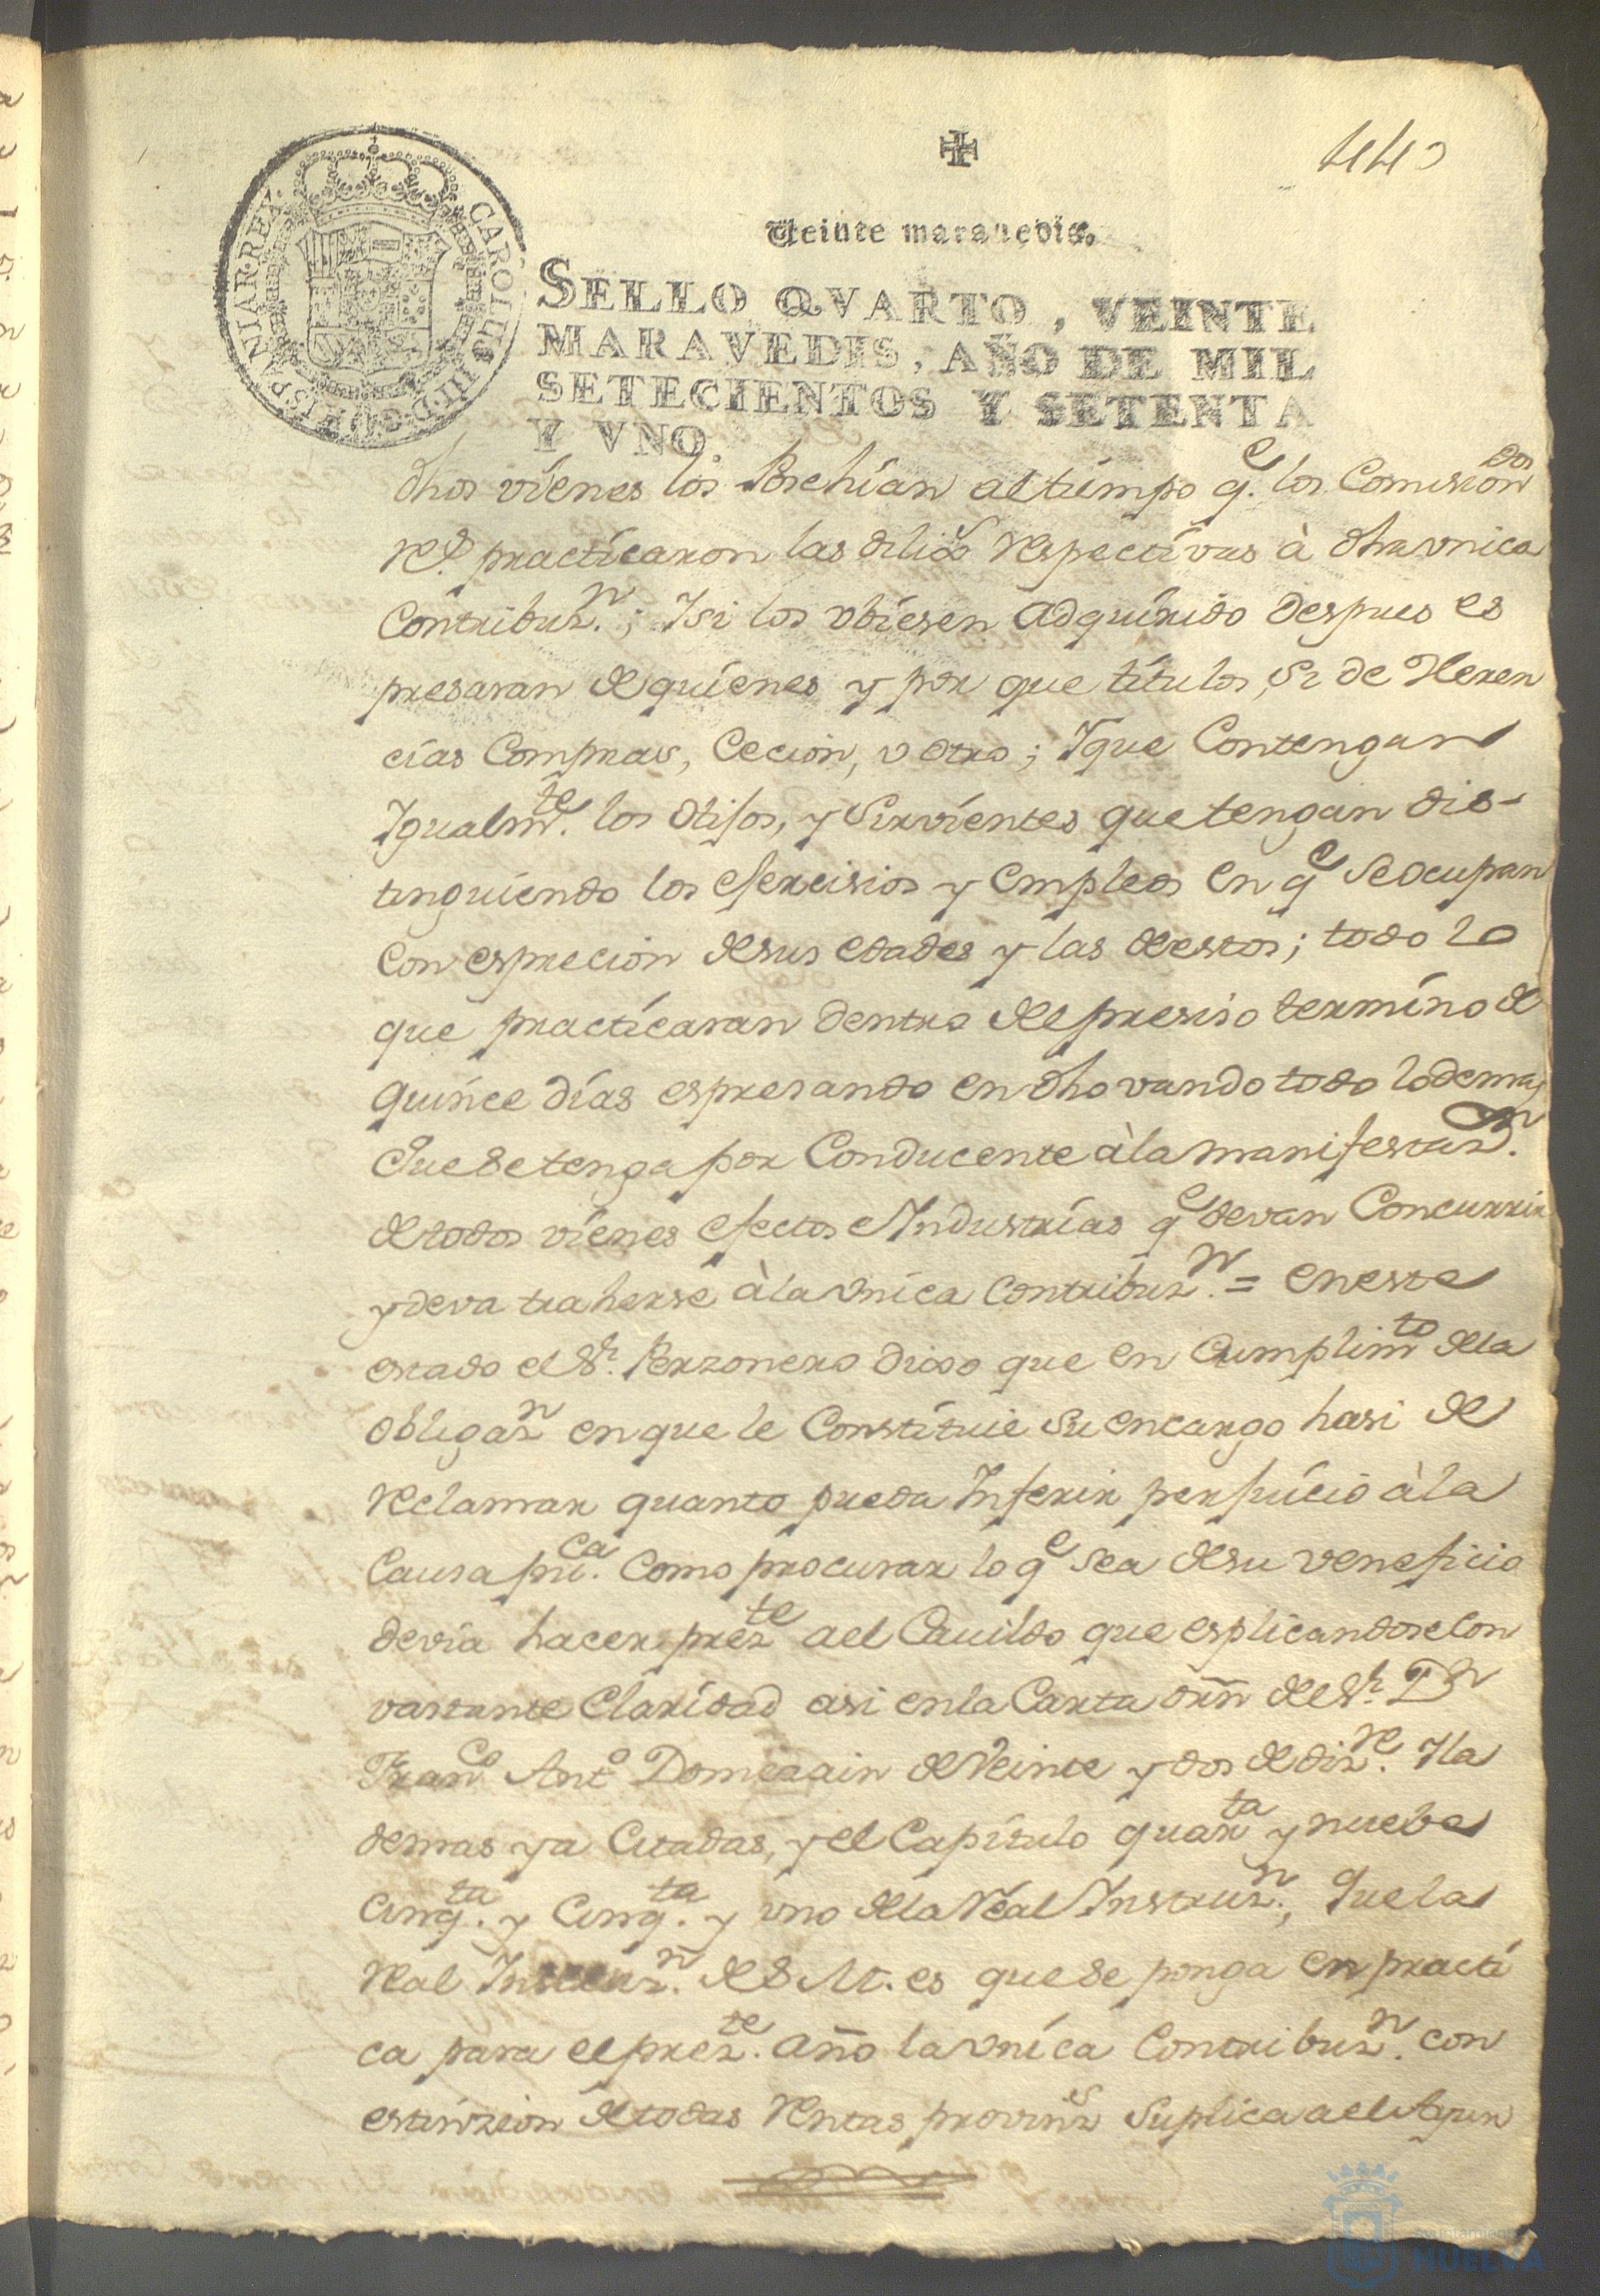 440
Veinte marauedis.
SELLO QVARTO, VEINTE
MARAVEDIS, AÑO DE MIL
SETECIENTOS Y SETENTA
Y VNO.
CAROLUS III D G HISPANIAR REX
dhos vienes los Posehian al tiempo q.e los Comision.dos
R.s practicaron las dilig.s respectivas à dha vnica
Contribuz.n; Isi los vbiesen adquirido despues es
presaran de quienes y por que titulos, Si de Heren
cias Compras, Cecion, v otro; Yque Contengan
Igualm.te los Hijos, y Sirvientes que tengan dis-
tinguiendo los efercisios y empleos en q.e Se ocupan
Con esprecion de sus edades y las de estos; todo lo
que practicaran dentro del presiso termino de
quince dias espresando en dho vando todo lo demas
Que Se tenga por Conducente à la manifestaz.n
de todos vienes efectos e Industrias q.e devan Concurrir
y deva traherse à la vnica Contribuz.n = en este
estado el S.r Perzonero dixo que en Cumplim.to de la
obligaz.n en que le Constituie Su encargo hasi de
Reclamar quanto pueda Inferir perjuicio à la
Causa pu.ca Como procurar lo q.e sea de su veneficio
devia hacer prez.te ael Cavildo que esplicandose con
vastante Claridad asi en la Carta orn del S.r D.n
Fran.co Ant.o Domezain de Veinte y dos de diz.re Y la
demas ya Citadas, y el Capitulo quar.ta y nueve
Cinq.ta y Cinq.ta y vno de la Real Instruz.n, Que la
Real Intenz.n de S. M. es que se ponga en practi
ca para el prez.te año la vnica Contribuz.n con
estinzion de todas Rentas provinz.s Suplica ael Ayun
Ayuntamiento
HUELVA